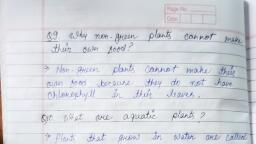 Page No.
Date
Q9 Why non-green plants cannot make
their own food?
→ Non-green plants cannot make their
own food because they do not have
chlorophyll in their leaves.
Q10 What are aquatic plants?
→ Plants that grow in water are called